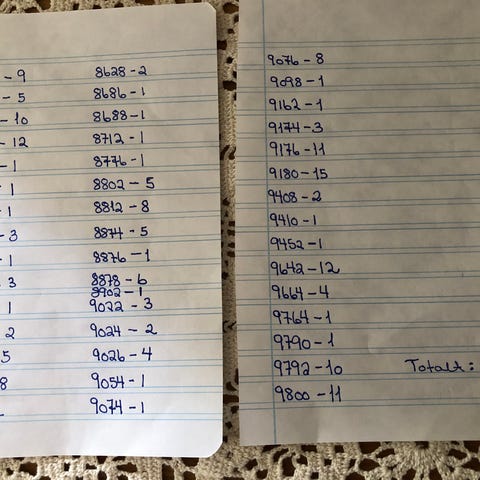 - 9
- 5
- 10
- 12
- 1
- 1
- 1
- 3
- 1
- 3
1
2
5
8
8628 - 2
8686 - 1
8688 - 1
8712 - 1
8776 - 1
8802 - 5
8812 - 8
8874 - 5
8876 - 1
8878 - 6
8902 - 1
9022 - 3
9024 - 2
9026 - 4
9054 - 1
9074 - 1
9076 - 8
9098 - 1
9162 - 1
9174 - 3
9176 - 11
9180 - 15
9408 - 2
9410 - 1
9452 - 1
9642 - 12
9664 - 4
9764 - 1
9790 - 1
9792 - 10
Totalt:
9800 - 11